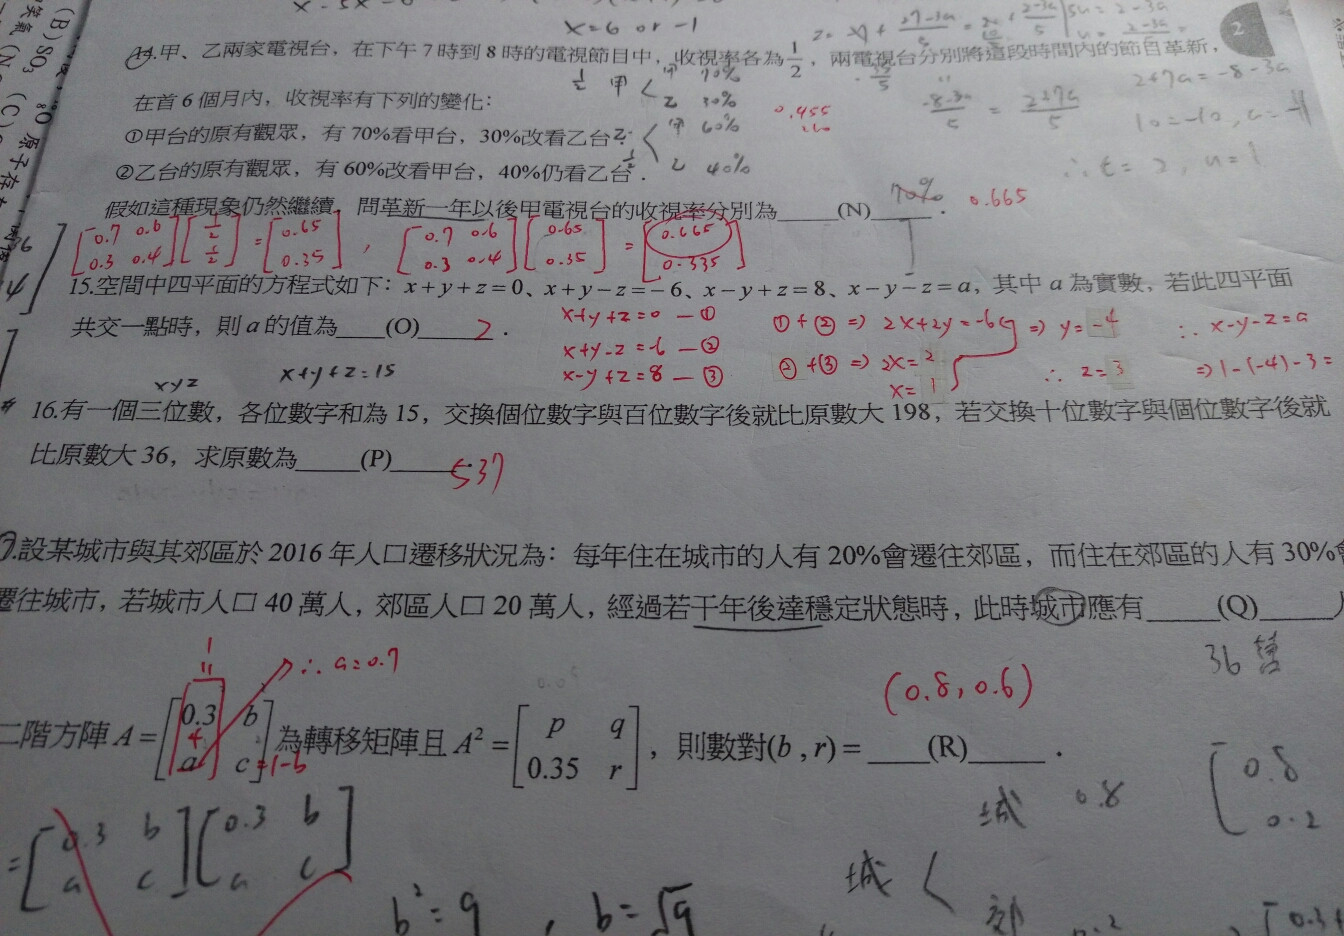 x=6 or -1
2
14.甲、乙兩家電視台，在下午 7 時到 8 時的電視節目中，收視率各為 1/2，兩電視台分別將這段時間內的節目革新，
在首 6 個月內，收視率有下列的變化：
1/2 甲 < 甲 70%
乙 30%
2+7a=-8-3a
①甲台的原有觀眾，有 70%看甲台，30%改看乙台.
乙 < 甲 60%
0.455
②乙台的原有觀眾，有 60%改看甲台，40%仍看乙台.
1/2 乙 40%
∴ t=2, u=1
假如這種現象仍然繼續，問革新一年以後甲電視台的收視率分別為____(N)____.
70% 0.665
[0.7 0.6 0.3 0.4][1/2 1/2]=[0.65 0.35], [0.7 0.6 0.3 0.4][0.65 0.35]=[0.665 0.335]
15.空間中四平面的方程式如下：x+y+z=0、x+y−z=−6、x−y+z=8、x−y−z=a，其中 a 為實數，若此四平面
共交一點時，則 a 的值為____(O)____. 2
x+y+z=0 —①
x+y-z=-6 —②
x-y+z=8 —③
①+② => 2x+2y=-6 => y=-4 ∴ x-y-z=a
②+③ => 2x=2 ∴ z=3 => 1-(-4)-3=
x=1
xyz x+y+z=15
16.有一個三位數，各位數字和為 15，交換個位數字與百位數字後就比原數大 198，若交換十位數字與個位數字後就
比原數大 36，求原數為____(P)____. 537
7.設某城市與其郊區於 2016 年人口遷移狀況為：每年住在城市的人有 20%會遷往郊區，而住在郊區的人有 30%會
遷往城市，若城市人口 40 萬人，郊區人口 20 萬人，經過若干年後達穩定狀態時，此時城市應有____(Q)____人
36 萬
∴ a=0.7
(0.8, 0.6)
二階方陣 A=[0.3 b a c]為轉移矩陣且 A²=[p q 0.35 r]，則數對(b , r)=____(R)____.
=1-b
=[0.3 b a c][0.3 b a c]
城 0.8
[0.8
0.2
城 < 郊
b²=9, b=√9